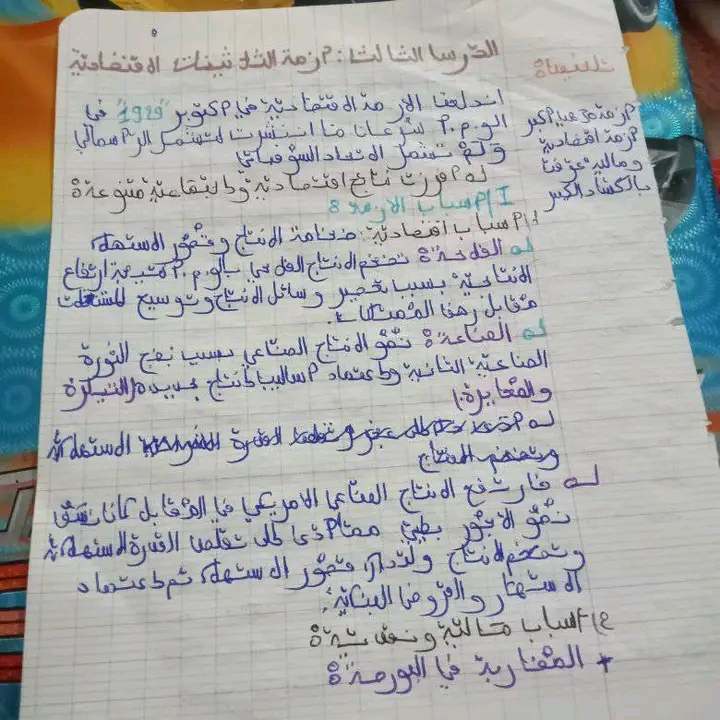 الدرس الثالث: أزمة الثلاثينات الاقتصادية
اندلعت الأزمة الاقتصادية في أكتوبر "1929" في
الو.م.أ سرعان ما انتشرت لتشمل الرأسمالي
ولم تشمل الاتحاد السوفياتي
له أفرزت نتائج اقتصادية وإجتماعية متنوعة
I/ أسباب الأزمة 8
1/ أسباب اقتصادية: ضخامة الإنتاج وقصور الاستهلاك
له الفلاحة تضخم الإنتاج الفلاحي بالو.م.أ نتيجة ارتفاع
الإنتاجية بسبب تحضير وسائل الإنتاج وتوسيع
مقابل رهن الممتلكات.
له الصناعة نمو الإنتاج الصناعي بسبب نضج الثورة
الصناعية الثانية وإعتماد أساليب إنتاج جديدة (التيلرة
والمعايرة)
الاستهلاكية
وتضخم الإنتاج
له فارتفع الإنتاج الصناعي الأمريكي في المقابل كان نسق
نمو الأجور بطيئ مما أدى إلى تقلص القدرة الاستهلاكية
وتضخم الإنتاج ولتدارك قصور الاستهلاك تم إعتماد
الاستهار والقروض البنكية.
2/ أسباب مالية ونقدية
+ المضاربة في البورصة
أزمة
أزمة اقتصادية
ومالية عرفت
بالكساد الكبير